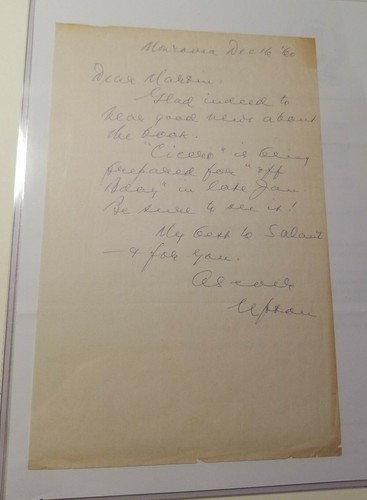 Monrovia Dec 16 '60
Dear Martin:
Glad indeed to
hear good news about
the book.
"Cicero" is being
prepared for "off
B'dway" in late Jan
Be sure to see it!
My best to Salant
— & for you.
As ever
Upton